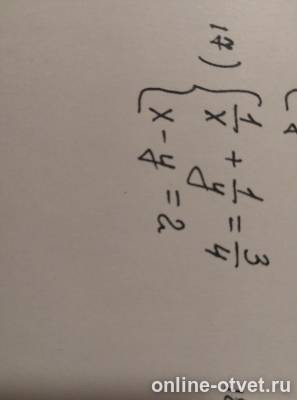 17)
1/x + 1/y = 3/4
x - y = 2
online-otvet.ru